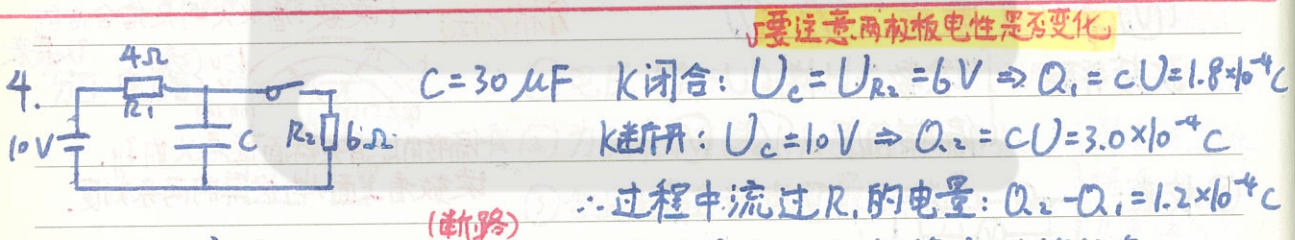 √要注意两极板电性是否变化
4. 10V 4Ω R₁ C R₂ 6Ω C=30μF K闭合: U_c=U_{R₂}=6V ⇒ Q₁=cU=1.8×10⁻⁴C
K断开: U_c=10V ⇒ Q₂=cU=3.0×10⁻⁴C
∴过程中流过R₁的电量: Q₂-Q₁=1.2×10⁻⁴C
(断路)